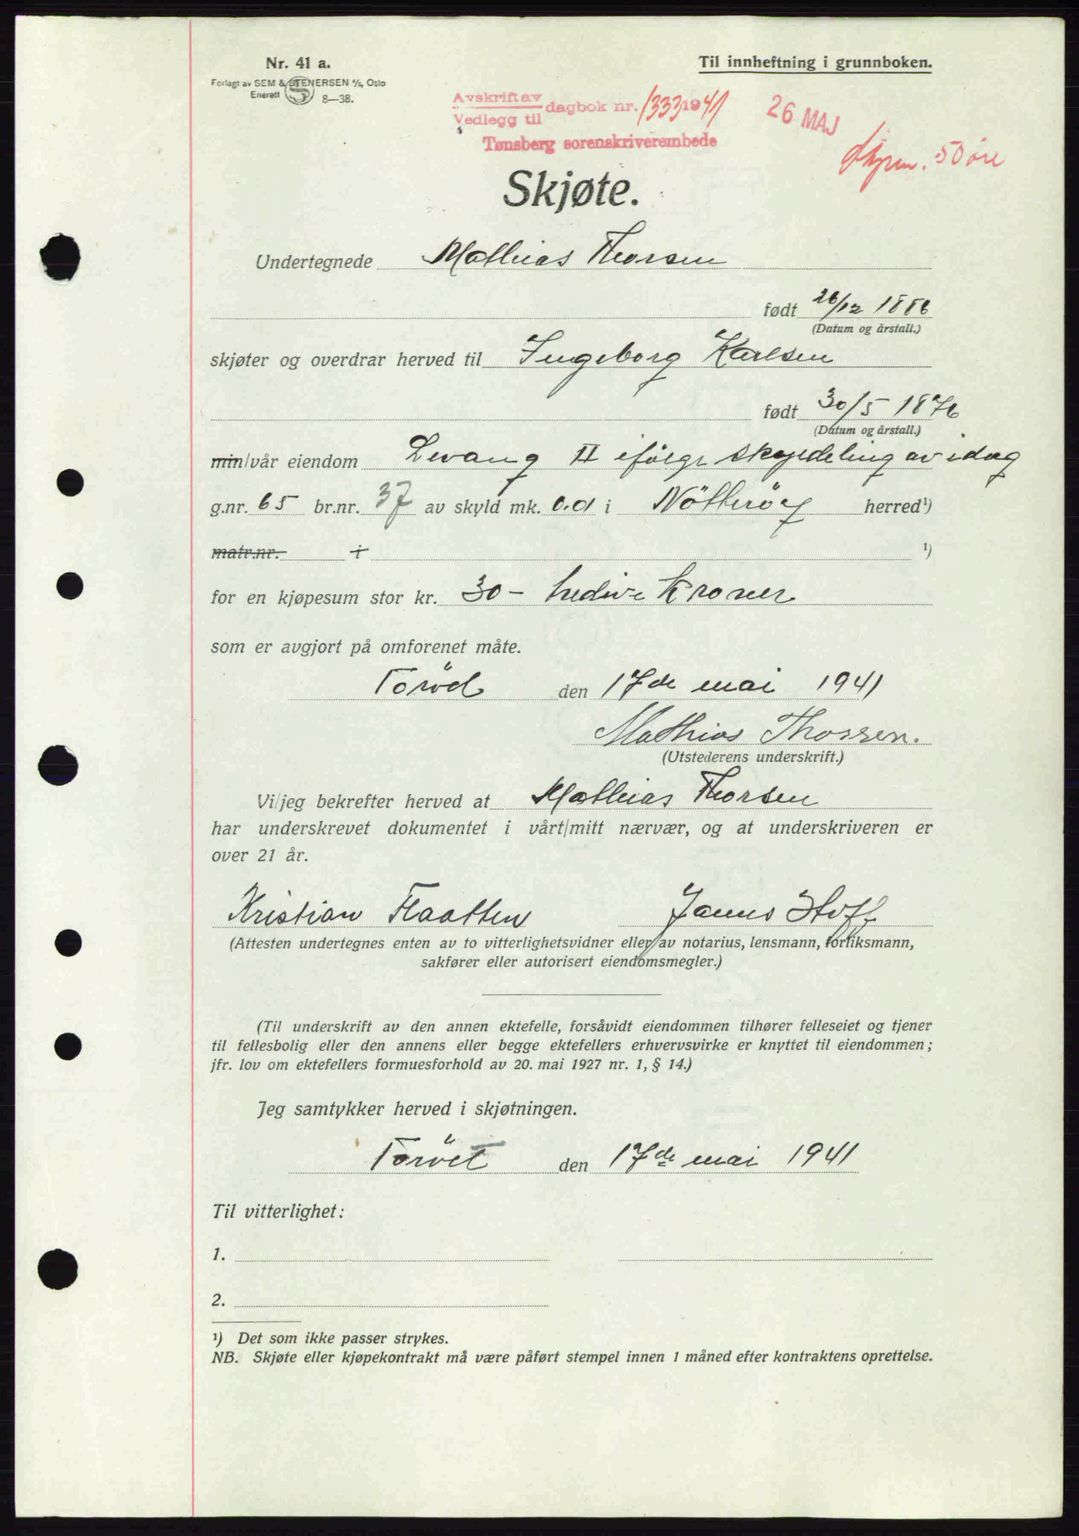 Nr. 41 a.
Til innheftning i grunnboken.
Forlagt av SEM & STENERSEN A/S, Oslo
Enerett 8—38.
Avskrift av
Vedlegg til dagbok nr. 1333 1941
Tønsberg sorenskriverembede
26 MAJ
50 øre
Skjøte.
Undertegnede Mathias Thorsen
født 26/12 1886
(Datum og årstall.)
skjøter og overdrar herved til Ingeborg Karlsen
født 30/5 1876
(Datum og årstall.)
min/vår eiendom Levang II ifölge skyldeling av idag
g.nr. 65 br.nr. 37 av skyld mk. 0.01 i Nötteröy herred¹)
matr.nr. ¹)
for en kjøpesum stor kr. 30 – tredive Kroner
som er avgjort på omforenet måte.
Toröd den 17de mai 1941
Mathias Thorsen.
(Utstederens underskrift.)
Vi/jeg bekrefter herved at Mathias Thorsen
har underskrevet dokumentet i vårt/mitt nærvær, og at underskriveren er
over 21 år.
Kristian Flaatten Hoff
(Attesten undertegnes enten av to vitterlighetsvidner eller av notarius, lensmann, forliksmann,
sakfører eller autorisert eiendomsmegler.)
(Til underskrift av den annen ektefelle, forsåvidt eiendommen tilhører felleseiet og tjener
til fellesbolig eller den annens eller begge ektefellers erhvervsvirke er knyttet til eiendommen;
jfr. lov om ektefellers formuesforhold av 20. mai 1927 nr. 1, § 14.)
Jeg samtykker herved i skjøtningen.
Toröd den 17de mai 1941
Til vitterlighet:
1.
2.
¹) Det som ikke passer strykes.
NB. Skjøte eller kjøpekontrakt må være påført stempel innen 1 måned efter kontraktens oprettelse.